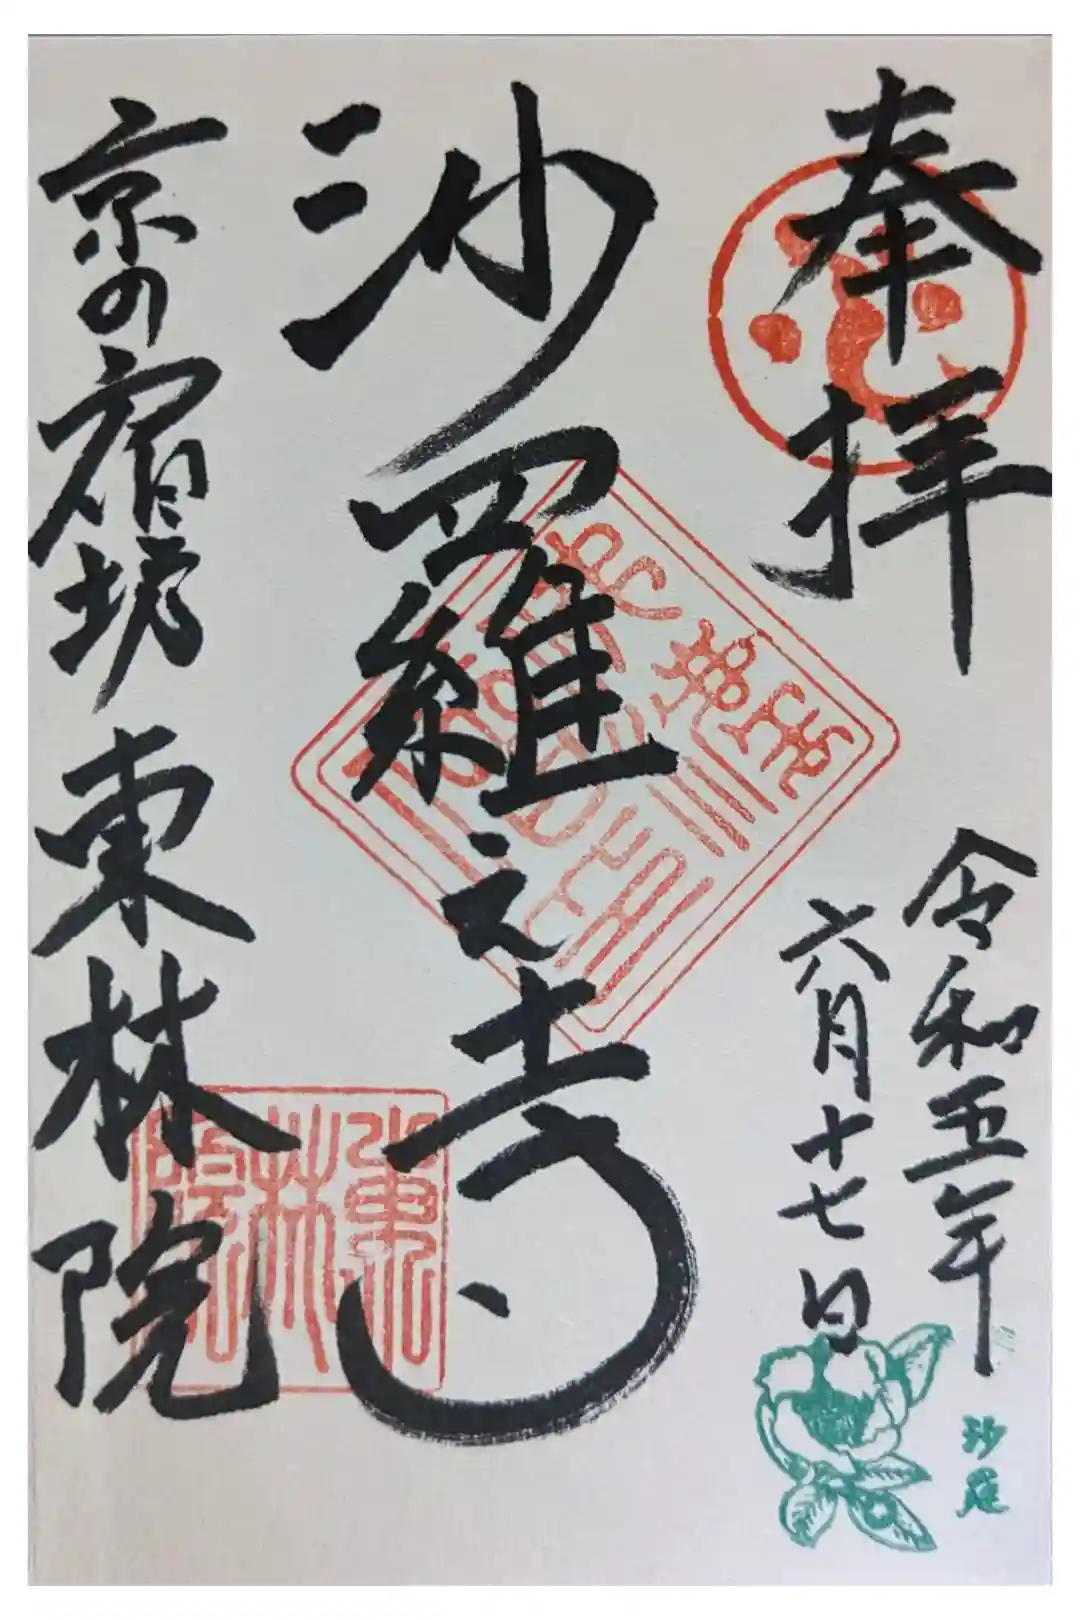 奉拝
令和五年
六月十七日
沙羅
沙羅之寺
京の宿坊 東林院
東林院